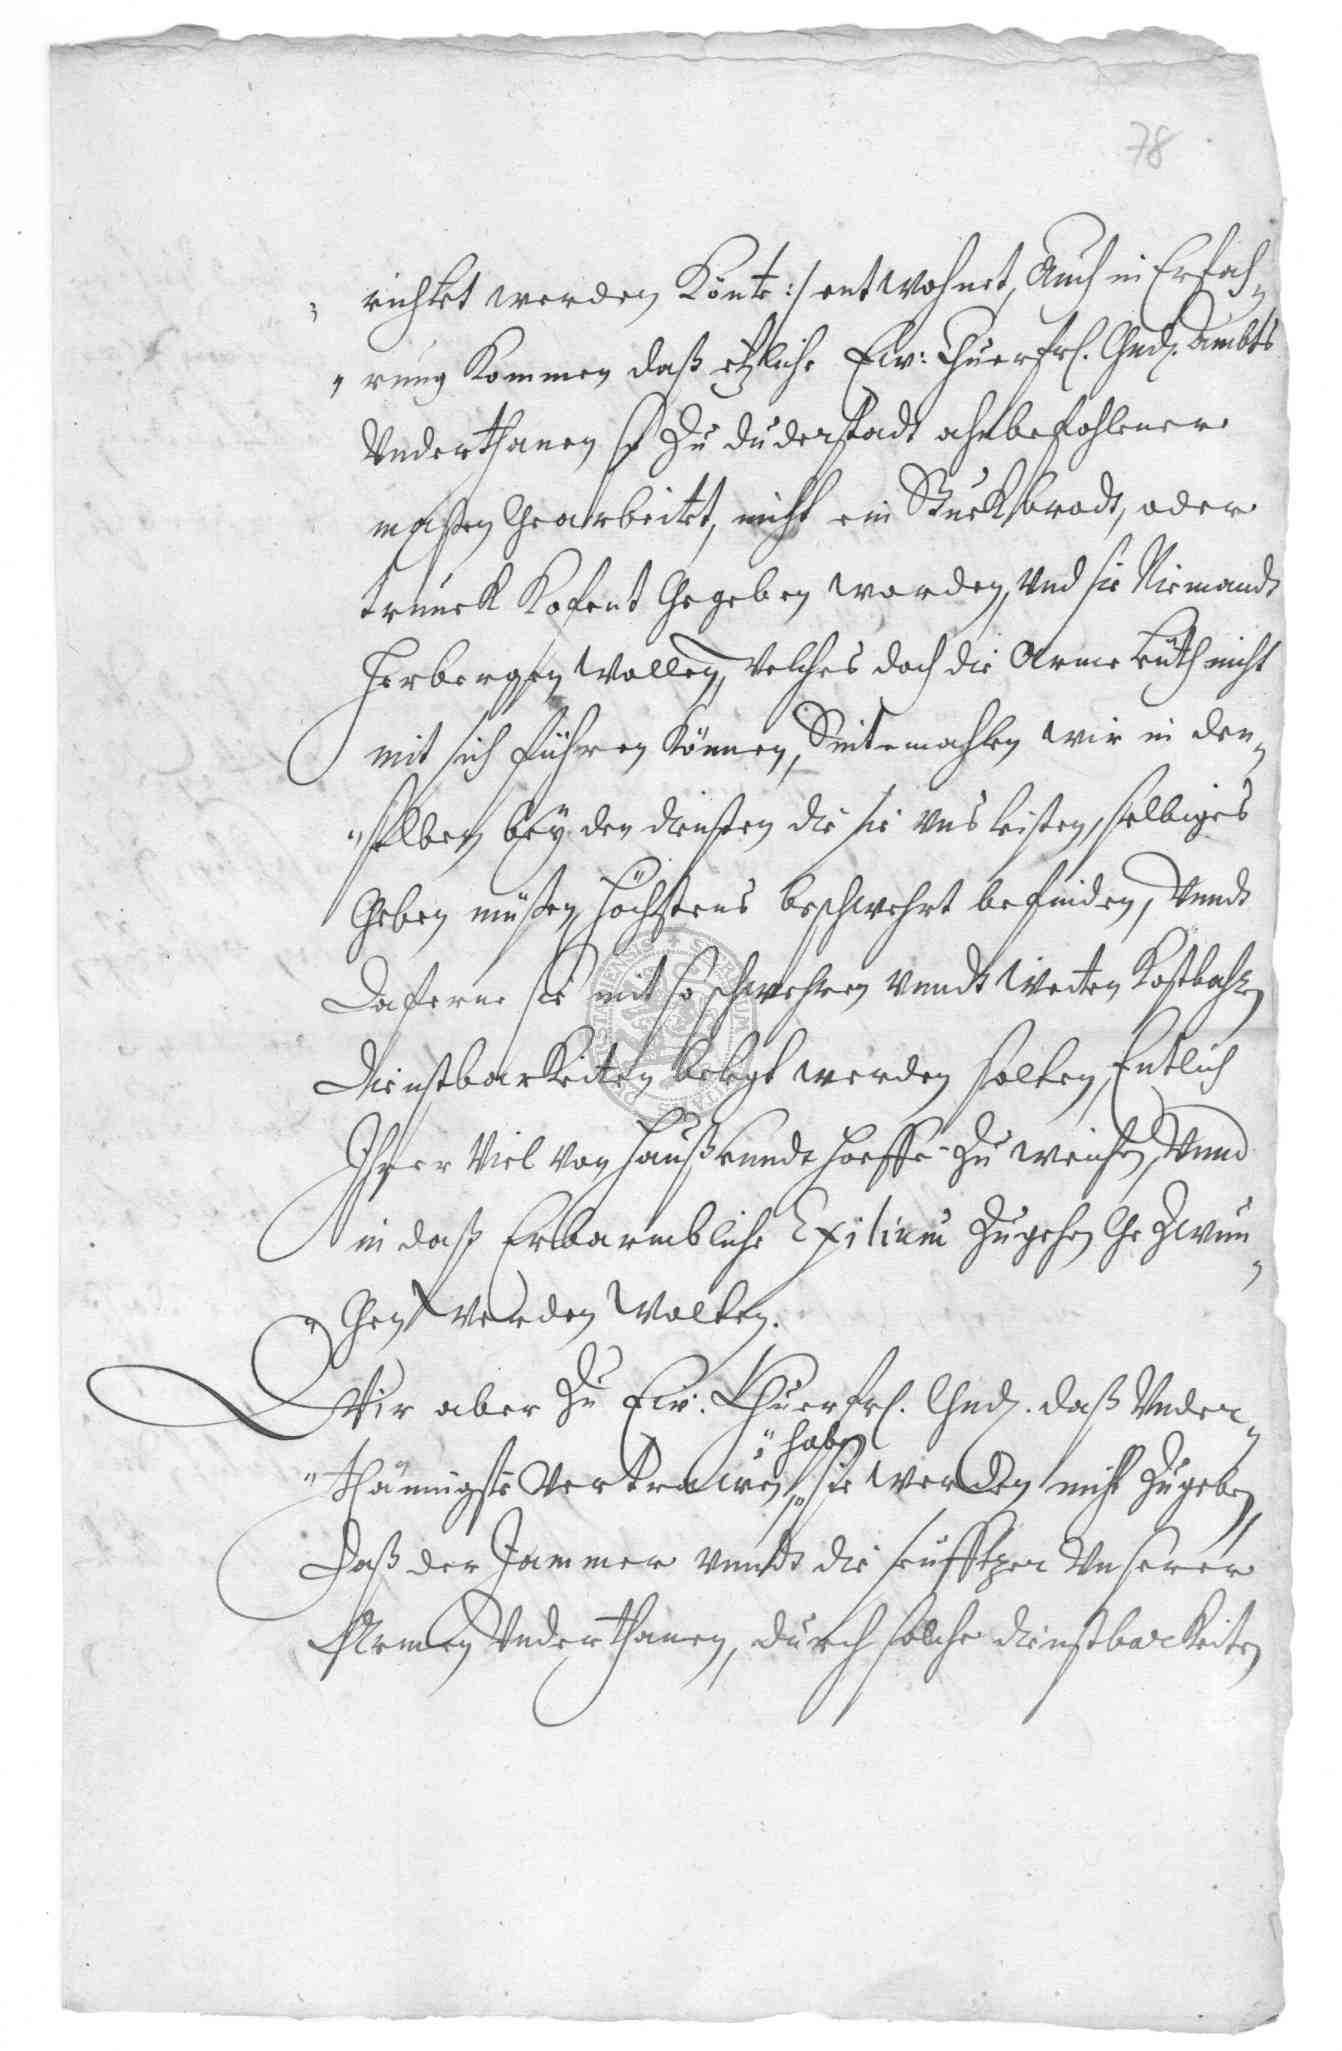 78
richtet werden Könte :/ entwohnet, Auch in Erfah„
„rung Kommen daß etzliche Ew: Chuerfrl. Gnd. Ambts
Underthanen so Zu duderstadt ahnbefohlener
maßen Gearbeitet, nicht ein Stuck brodt, oder
trunck Kofent Gegeben worden, Und sie Niemandt
Herbergen wollen, Welches doch die Arme Leuth nicht
mit sich führen können, Sintemahlen wir in den„
„selben bey den diensten die sie uns leisten, selbiges
Geben müßen, höchstens beschwehrt befinden, Vundt
Daferne sie mit so schwehren vundt weiten Kostbahren
Dienstbarkeiten belegt werden solten, Entlich
Ihrer Viel von Hauß vundt Hoeffe Zu weichen, Vund
in daß Erbarmbliche Exilium Zugehen Ge Zwun„
„gen werden wolten.
Wir aber Zu Ew. Chuerfrl. Gnd. daß Under„
„thänigste Vertrawen haben, sie werden nicht Zugeben,
Daß der Jammer vundt die seufftzer Unserer
Armen Underthanen, durch solche dienstbarkeiten